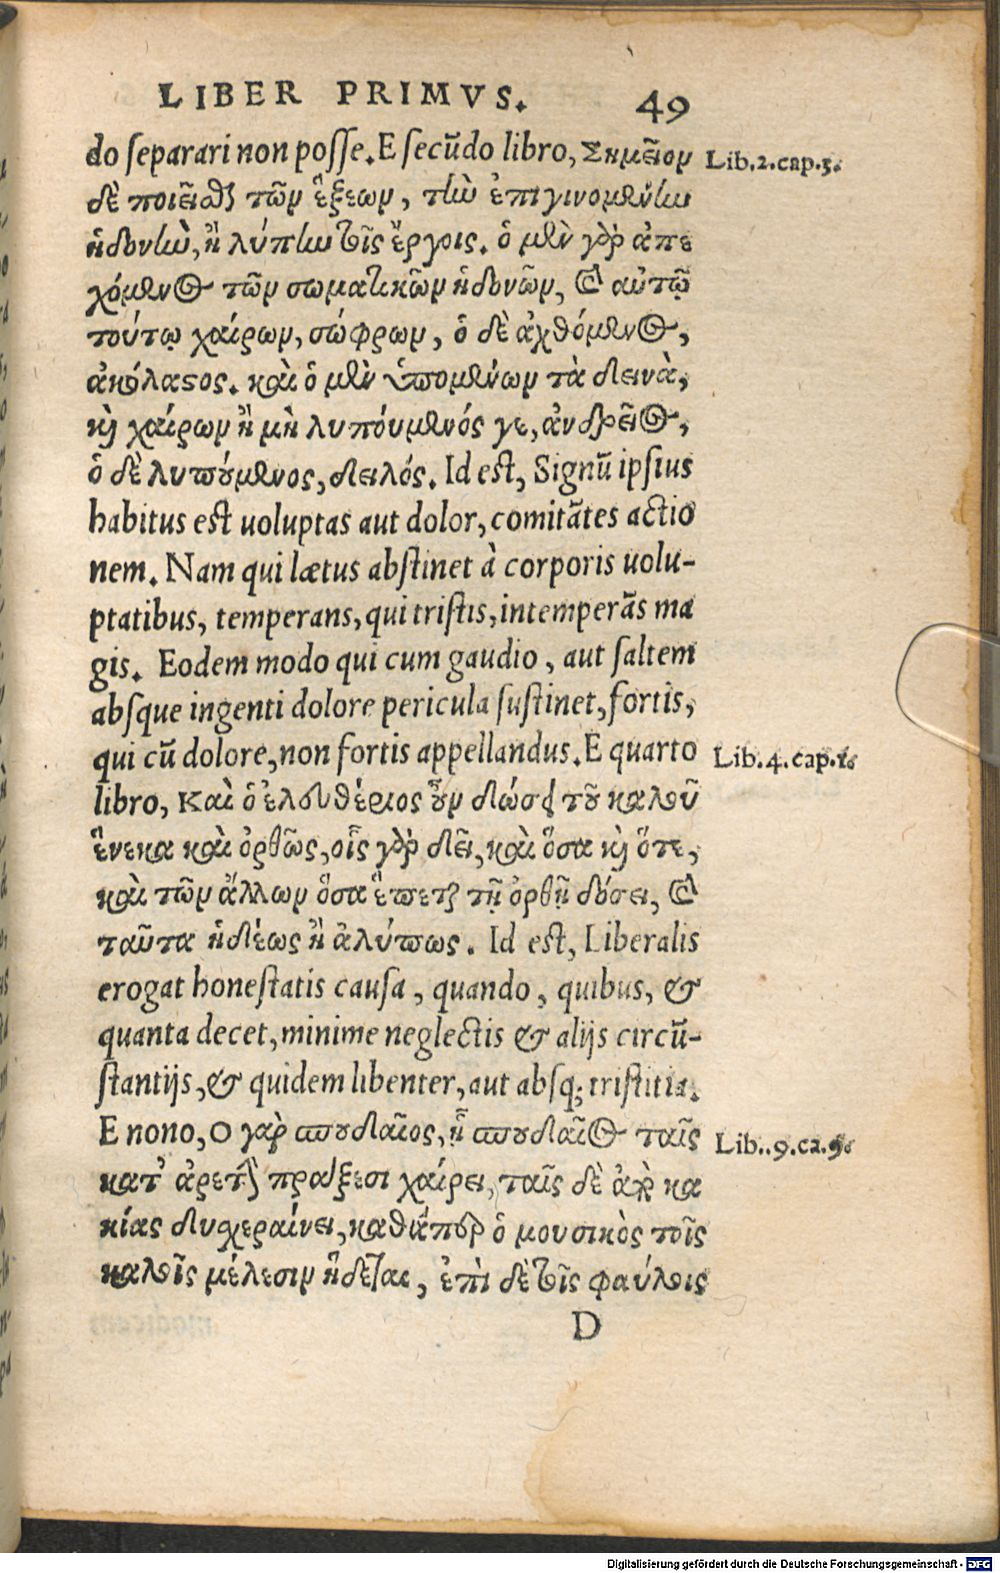 LIBER PRIMVS. 49
do separari non posse. E secūdo libro, Σημεῖον Lib.2.cap.3.
δὲ ποιεῖσθαι τῶν ἕξεων, τὴν ἐπιγινομένην
ἡδονὴν, ἢ λύπην τοῖς ἔργοις. ὁ μὲν γὰρ ἀπε
χόμενος τῶν σωματικῶν ἡδονῶν, καὶ αὐτῷ
τούτῳ χαίρων, σώφρων, ὁ δὲ ἀχθόμενος,
ἀκόλαστος. καὶ ὁ μὲν ὑπομένων τὰ δεινὰ,
καὶ χαίρων ἢ μὴ λυπόυμενός γε, ἀνδρεῖος,
ὁ δὲ λυπούμενος, δειλός. Id est, Signū ipsius
habitus est uoluptas aut dolor, comitātes actio
nem. Nam qui lætus abstinet à corporis uolu-
ptatibus, temperans, qui tristis, intemperās ma
gis. Eodem modo qui cum gaudio, aut saltem
absque ingenti dolore pericula sustinet, fortis,
qui cū dolore, non fortis appellandus. E quarto Lib.4.cap.1.
libro, Καὶ ὁ ἐλευθέριος οὖν δώσει τοῦ καλοῦ
ἕνεκα καὶ ὀρθῶς, οἷς γὰρ δεῖ, καὶ ὅσα καὶ ὅτε,
καὶ τῶν ἄλλων ὅσα ἕπεται τῇ ὀρθῇ δόσει, καὶ
ταῦτα ἡδέως ἢ ἀλύπως. Id est, Liberalis
erogat honestatis causa, quando, quibus, &
quanta decet, minime neglectis & alijs circū-
stantijs, & quidem libenter, aut absq; tristitia.
E nono, Ο γὰρ σπουδαῖος, ᾗ σπουδαῖος ταῖς Lib..9.ca.9.
κατ' ἀρετὴν πράξεσι χαίρει, ταῖς δὲ ἀπὸ κα
κίας δυχεραίνει, καθάπερ ὁ μουσικὸς τοῖς
καλοῖς μέλεσιν ἥδεται, ἐπὶ δὲ τοῖς φαύλοις
D
Digitalisierung gefördert durch die Deutsche Forschungsgemeinschaft - DFG